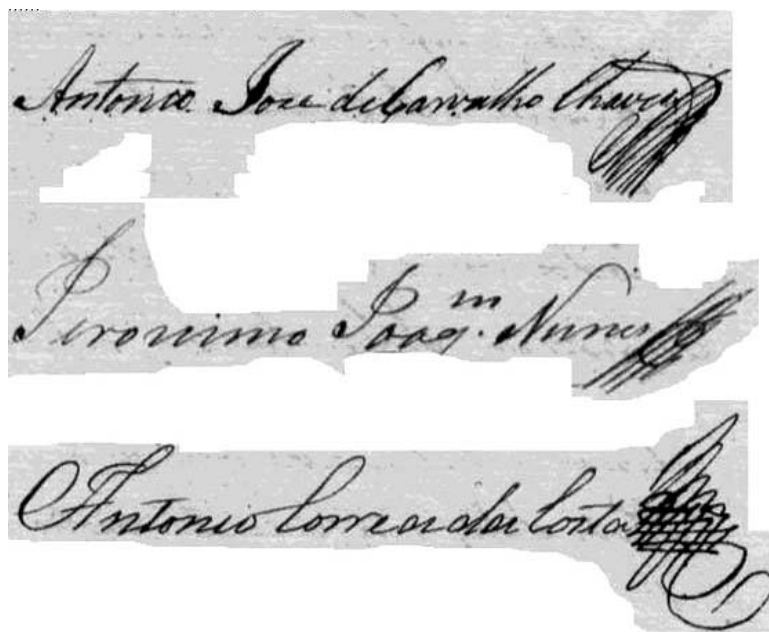 Antonio Jose de Carvalho Chaves
Jeronimo Joaq.m Nunes
Antonio Correa da Costa